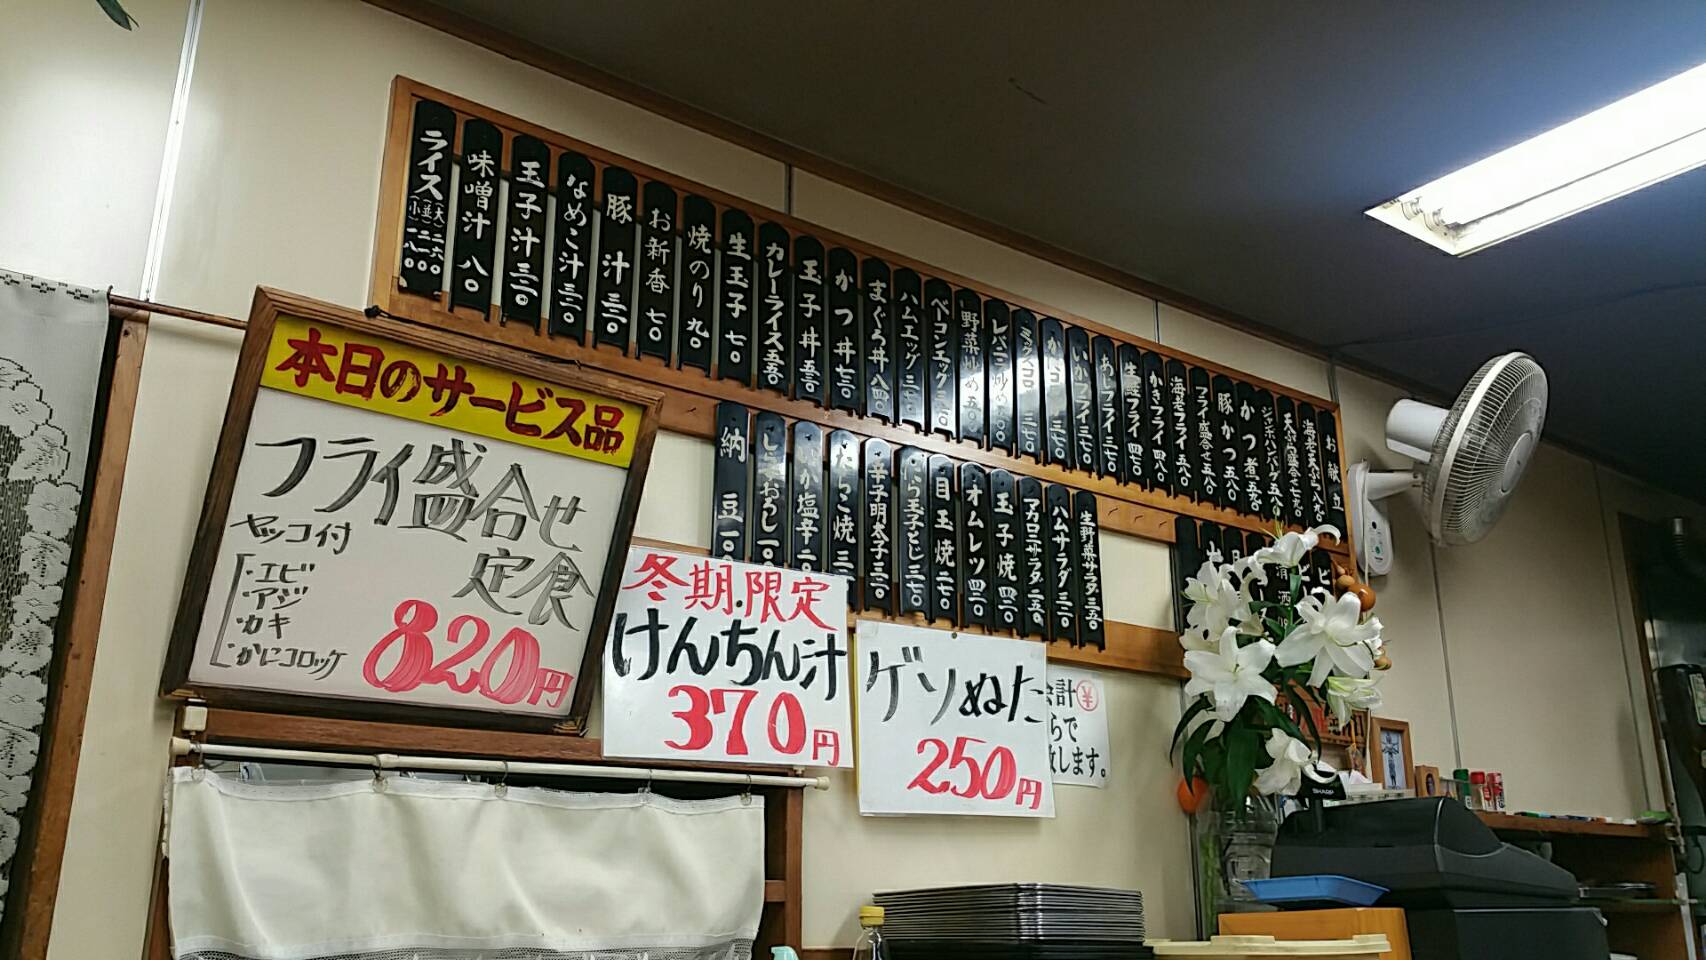 お献立
海老天ぷら 八九〇
天ぷら盛合せ 七九〇
ジャンボハンバーグ 五八〇
かつ煮 五九〇
豚かつ 五八〇
フライ盛合せ 五八〇
海老フライ 五八〇
かきフライ 四八〇
生鮭フライ 四七〇
あじフライ 三七〇
いかフライ 三七〇
ミックスコロ 三七〇
レバニラ炒め
野菜炒め 五〇〇
ベーコンエッグ
ハムエッグ
まぐろ丼 八四〇
かつ丼 七三〇
玉子丼 五五〇
カレーライス 五五〇
生玉子 七〇
焼のり 九〇
お新香 七〇
豚汁 三三〇
なめこ汁 三三〇
玉子汁 三三〇
味噌汁 八〇
ライス (大)二六〇 (並)二一〇 (小)一八〇
生野菜サラダ 三五〇
ハムサラダ
マカロニサラダ 二五〇
玉子焼 四三〇
オムレツ 四三〇
目玉焼 二七〇
にら玉子とじ 三七〇
辛子明太子
たらこ焼
いか塩辛
しらすおろし
納豆
清酒
本日のサービス品
フライ盛合せ
定食
ヤッコ付
・エビ
・アジ
・カキ
・かにコロッケ
820円
冬期限定
けんちん汁
370円
ゲソぬた
250円
会計
らで
致します。
SHARP